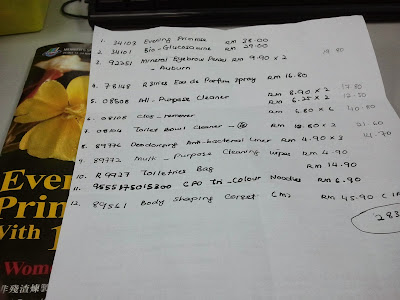 1. 34103 Evening Primrose RM 38.00
2. 34101 Bio-Glucosamine RM 29.00
3. 92351 Mineral Eyebrow Pencil RM 9.90 x 2 19.80
- Auburn
4. 78148 Eau de Parfum Spray RM 16.80
5. 08508 All-Purpose Cleaner RM 8.90 x 2 17.80
RM 6.25 x 2 12.50
6. 08108 remover RM 6.80 x 6 40.80
7. 08104 Toilet Bowl Cleaner RM 10.80 x 2 21.60
8. 89776 Deodorizing Anti-bacterial Liner RM 4.90 x 3 14.70
9. 89772 Multi-Purpose Cleaning Wipes RM 4.90
10. R9927 Toiletries Bag RM 14.90
11. 9555175015300 Tri-Colour Noodles RM 6.90
12. 89561 Body Shaping Corset (M) RM 45.90
283
Eve
Prim
With 1
Wom
非殘渣煉